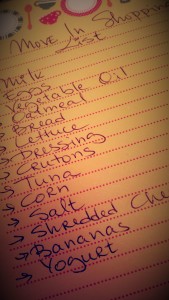 Move In Shopping
List
Milk
Eggs
Vegetable Oil
Oatmeal
Bread
Lettuce
→ Dressing
→ Croutons
→ Tuna
→ Corn
→ Salt
→ Shredded Che
→ Bananas
→ Yoguet